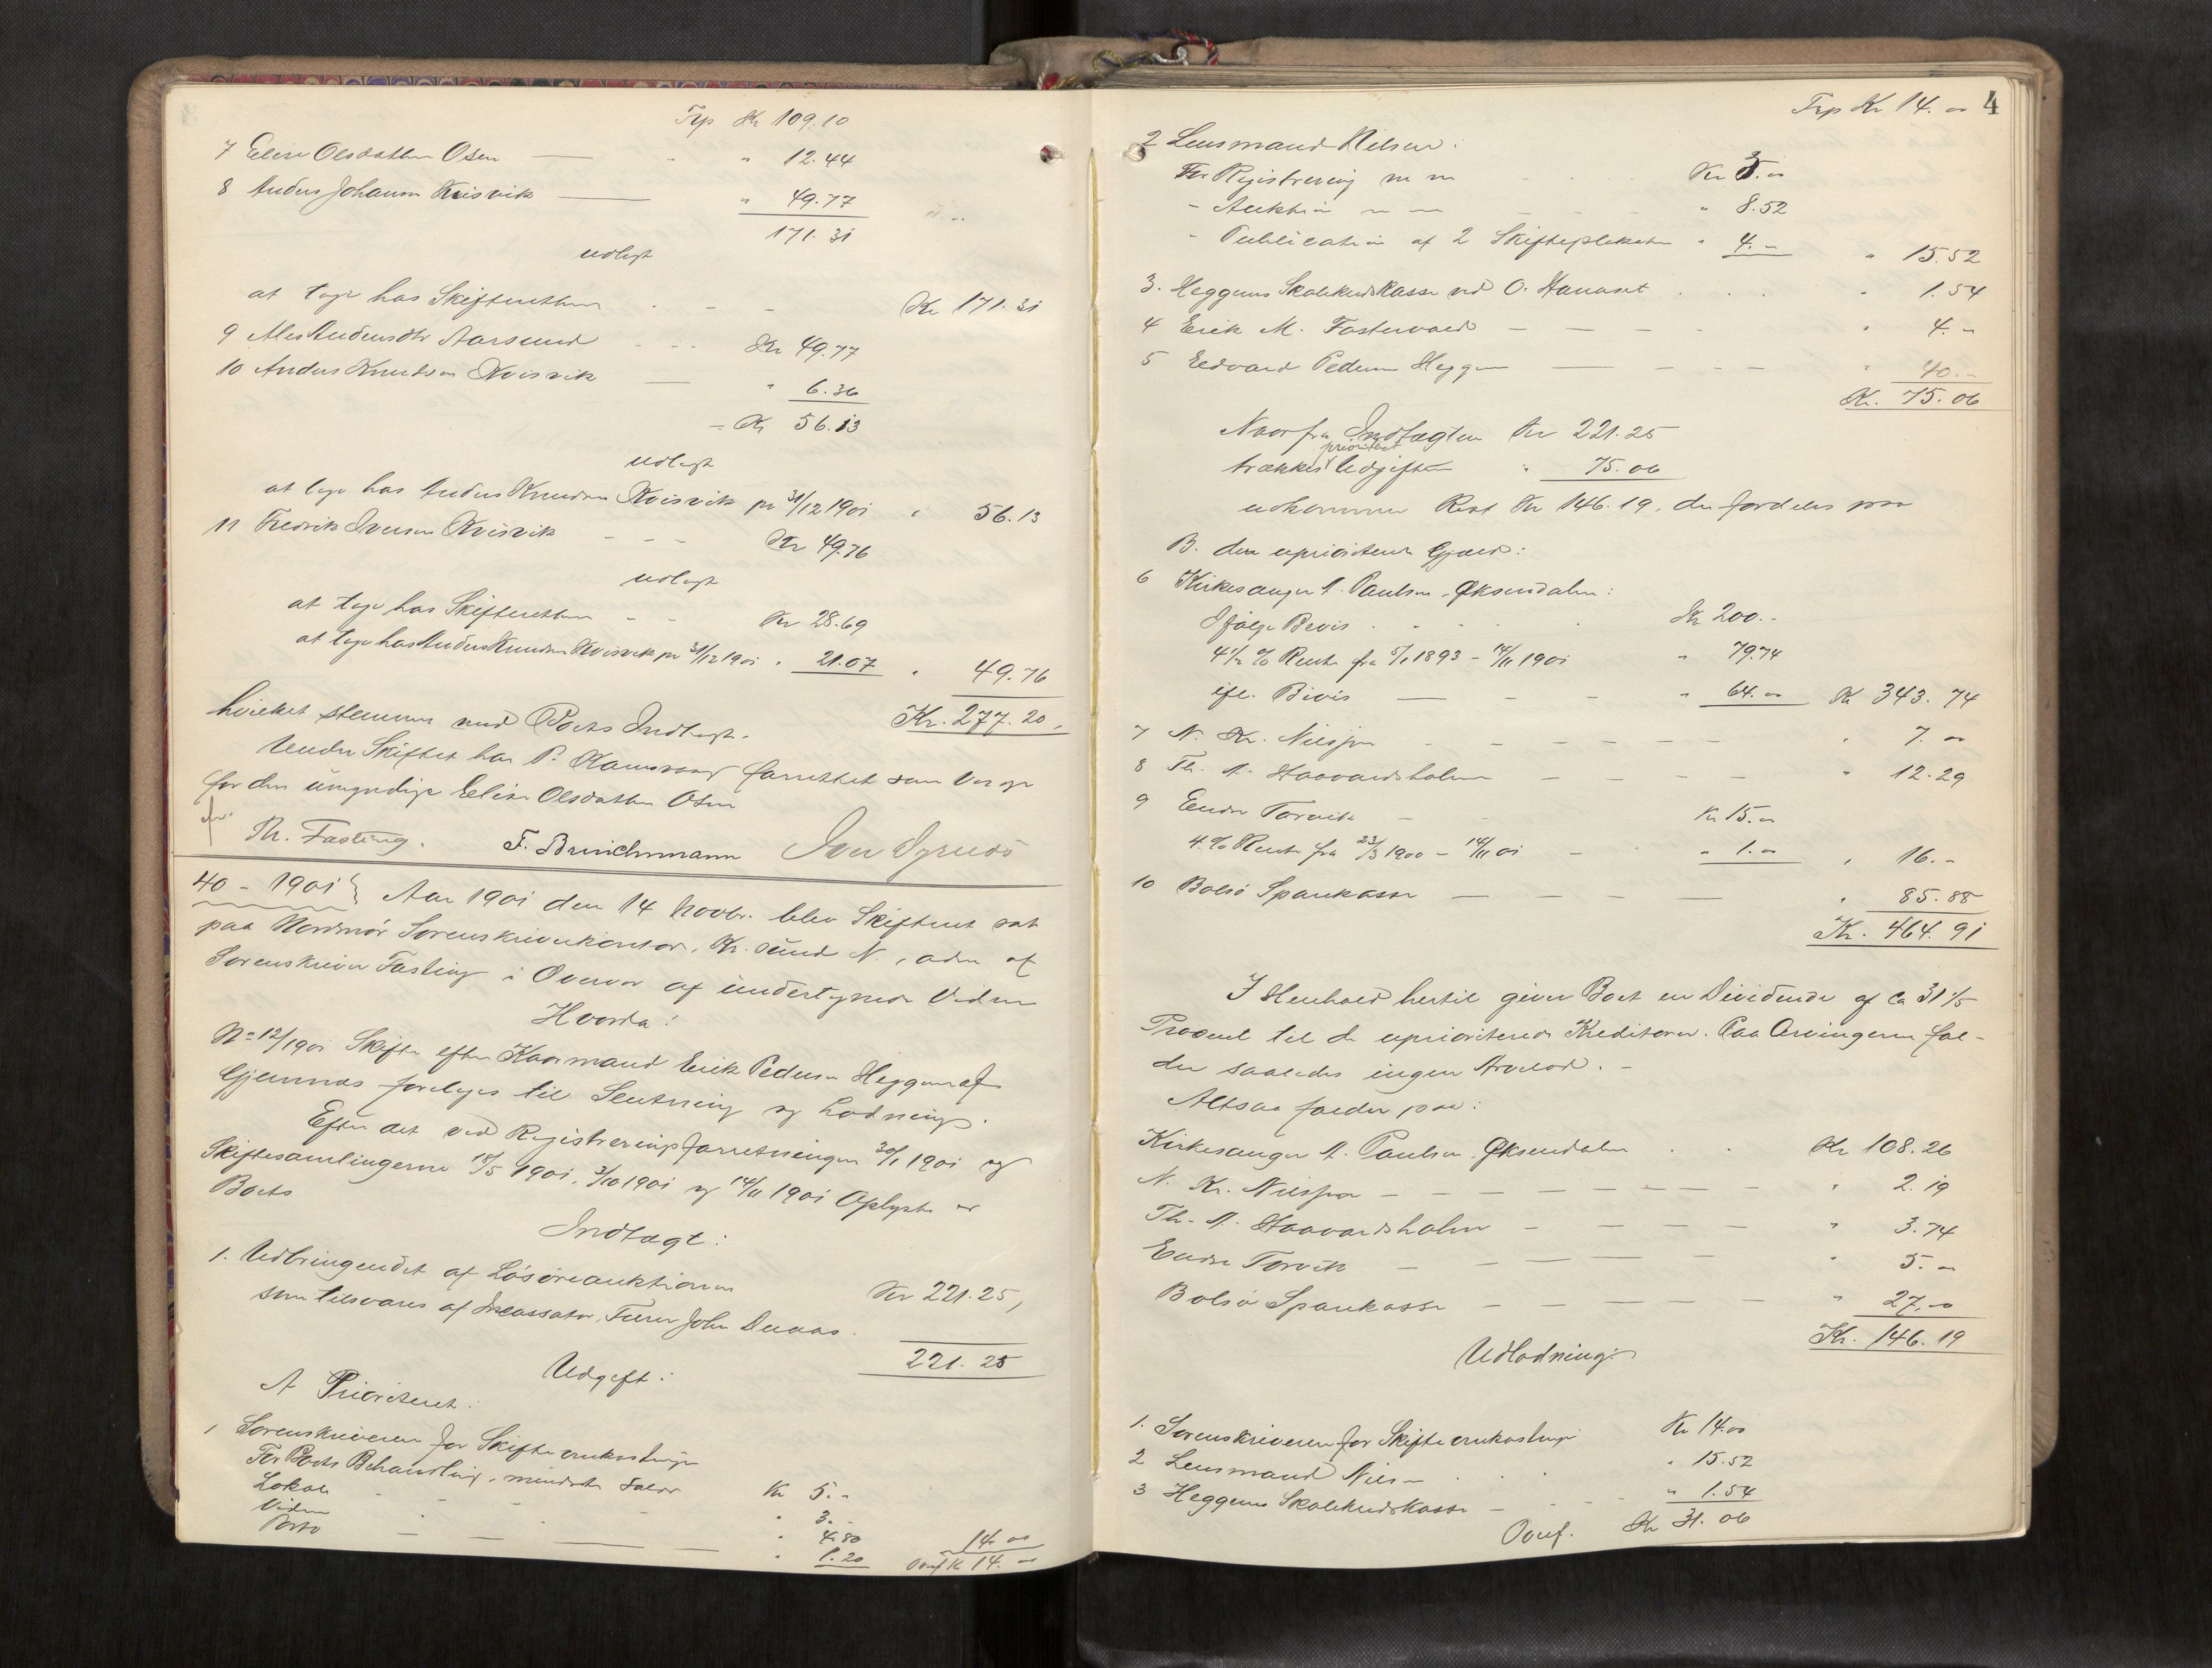 Trp Kr 109.10
7 Elise Olsdatter Osen — " " 12.44
8 Anders Johansen Kvisvik — " 49.77
171.31
udlagt
at tage hos Skifteretten - - - Kr 171.31
9 Ales Andersdtr Aarsund - - - Kr 49.77
10 Anders Knutsen Kvisvik — " 6.36
= Kr 56.13
udlagt
at tage hos Anders Knudsen Kvisvik pr 31/12 1901 " 56.13
11 Fredrik Iversen Kvisvik - - - Kr 49.76
udlagt
at tage hos Skifteretten - - Kr 28.69
at tage hos Anders Knudsen Kvisvik pr 31/12 1901 " 21.07 " 49.76
hvilket stemmer med Boets Indtægt. Kr. 277.20,
Under Skiftet har P. forrettet som Verge
for den umyndige Elise Olsdatter Osen
Th. Fasting. F. Brinchmann Iver
40 - 1901 } Aar 1901 den 14 Novbr. blev Skifteret sat
paa Nordmør Sorenskriverkontor, Kr.sund N., adm af
Sorenskriver Fasting i Overvær af undertegnede Vidner
Hvorda:
No 12/1901 Skifte efter Kaarmand Erik Pedersen Heggem af
Gjemnæs foretages til Slutning og Lodning.
Efter det ved Registreringsforretningen 30/1 1901 og
Skiftesamlingerne 18/5 1901, 3/10 1901 og 14/11 1901 Oplyste er
Boets
Indtægt:
1. Udbringendet af Løsøreauktionen
som tilsvares af Incassator, Furer John Duaas. Kr 221.25,
221.25
Udgift:
A Prioriteret:
1 Sorenskriveren for Skifteomkostninger
For Boets Behandling, mindste Salær Kr 5.-
Lokale - - - " 3.-
Vidner - - - " 4.80
Porto — — — " 1.20 14.00
Ovrf Kr 14.-
4
Trp Kr 14.00
2 Lensmand Nilsen:
For Registrering m m - - Kr 3.00
- Auktion m m - - - " 8.52
- Publication af 2 Skifteplakater " 4.- " 15.52
3. Heggems Skolekredskasse ved O. Hanaset . . . " 1.54
4 Erik M. Fostervold — — — - " 4.-
5 Edvard Pedersen Heggem — - - — " 40.-
Kr. 75.06
Naar fra Indtægten Kr 221.25
trækkes prioritert Udgifter " 75.06
udkommer Rest Kr 146.19, der fordeles paa
B. den uprioriterte Gjæld:
6 Kirkesanger A. Paulsen, Øksendalen:
Ifølge Bevis . - - . Kr 200.-
4½ % Rente fra 5/1 1893 - 14/11 1901 " 79.74
ifl. Bevis — - - - " 64.00 Kr 343.74
7 N. Kr. Nilssen - — — — — — " 7.00
8 Th. A. Haavardsholm — — — — " 12.29
9 Endre Torvik — - Kr 15.00
4 % Rente fra 23/3 1900 - 14/11 01 - " 1.00 " 16.-
10 Bolsø Sparekasse — — — — " 85.88
Kr. 464.91
I Henhold hertil giver Boet en Dividende af ca 31½
Procent til de uprioriterede Kreditorer. Paa Arvingerne fal-
der saaledes ingen Arvelod. -
Altsaa falder paa:
Kirkesanger A. Paulsen, Øksendalen . . Kr 108.26
N. Kr. Nilssen — — — — — — — " 2.19
Th. A. Haavardsholm — — — — " 3.74
Endre Torvik — — — — — " 5.00
Bolsø Sparekasse — — — — — " 27.00
Kr. 146.19
Udlodning:
1. Sorenskriveren for Skifteomkostninger Kr 14.00
2 Lensmand Nilsen . . . " 15.52
3 Heggems Skolekredskasse — - - " 1.54
Ovrf. Kr 31.06